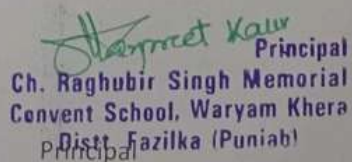 Harpreet Kaur
Principal
Ch. Raghubir Singh Memorial
Convent School, Waryam Khera
Distt. Fazilka (Punjab)
Principal